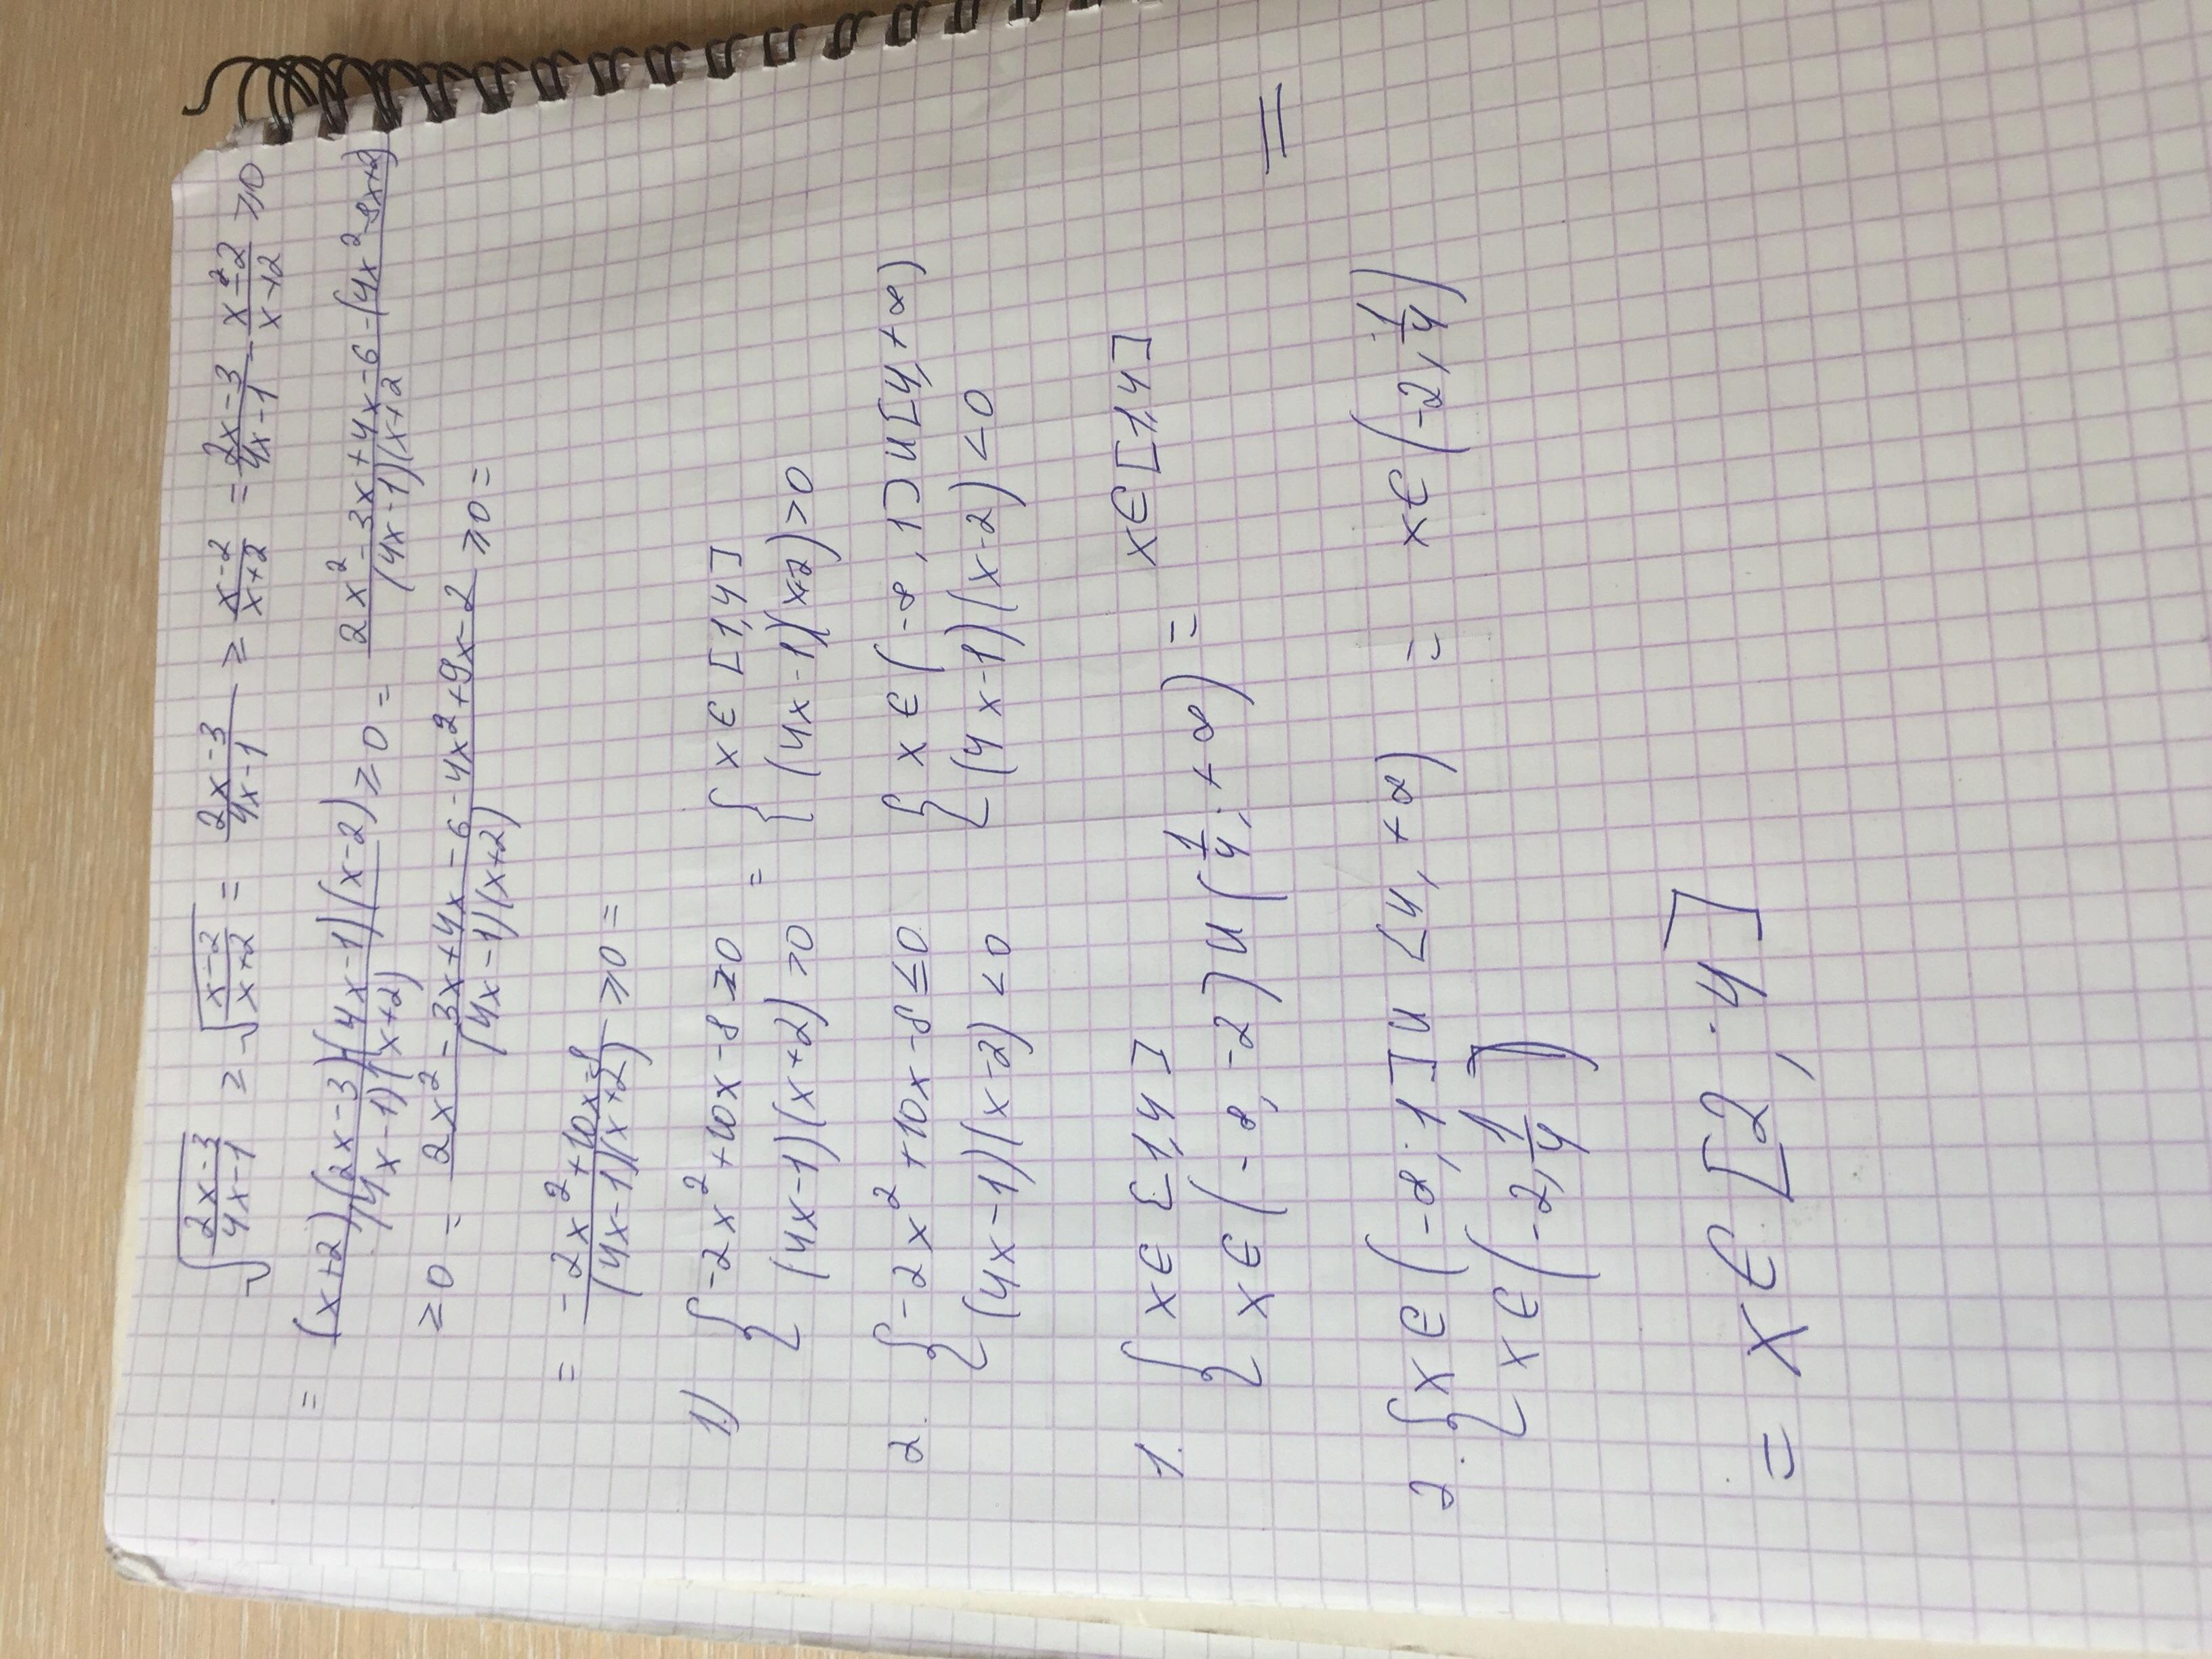 √((2x-3)/(4x-1)) ≥ √((x-2)/(x+2)) = (2x-3)/(4x-1) ≥ (x-2)/(x+2) = (2x-3)/(4x-1) - (x-2)/(x+2) ≥ 0
= ((x+2)(2x-3)-(4x-1)(x-2))/((4x-1)(x+2)) ≥ 0 = (2x² - 3x + 4x - 6 - (4x² - 9x+2))/((4x-1)(x+2))
≥ 0 = (2x² - 3x + 4x - 6 - 4x² + 9x - 2)/((4x-1)(x+2)) ≥ 0 =
= (-2x² + 10x - 8)/((4x-1)(x+2)) ≥ 0 =
1.) { -2x² + 10x - 8 ≥ 0 = { x ∈ [1,4]
(4x-1)(x+2) > 0 (4x-1)(x+2) > 0
2. { -2x² + 10x - 8 ≤ 0 { x ∈ (-∞, 1] ∪ [4, +∞)
(4x-1)(x-2) < 0 (4x-1)(x-2) < 0
1. { x ∈ [1,4] x ∈ [1,4]
x ∈ (-∞, -2) ∪ (1/4; +∞) = =
2. { x ∈ (-∞; 1] ∪ <4, +∞) = x ∈ (-2, 1/4)
x ∈ (-2, 1/4)
= x ∈ [2; 4]